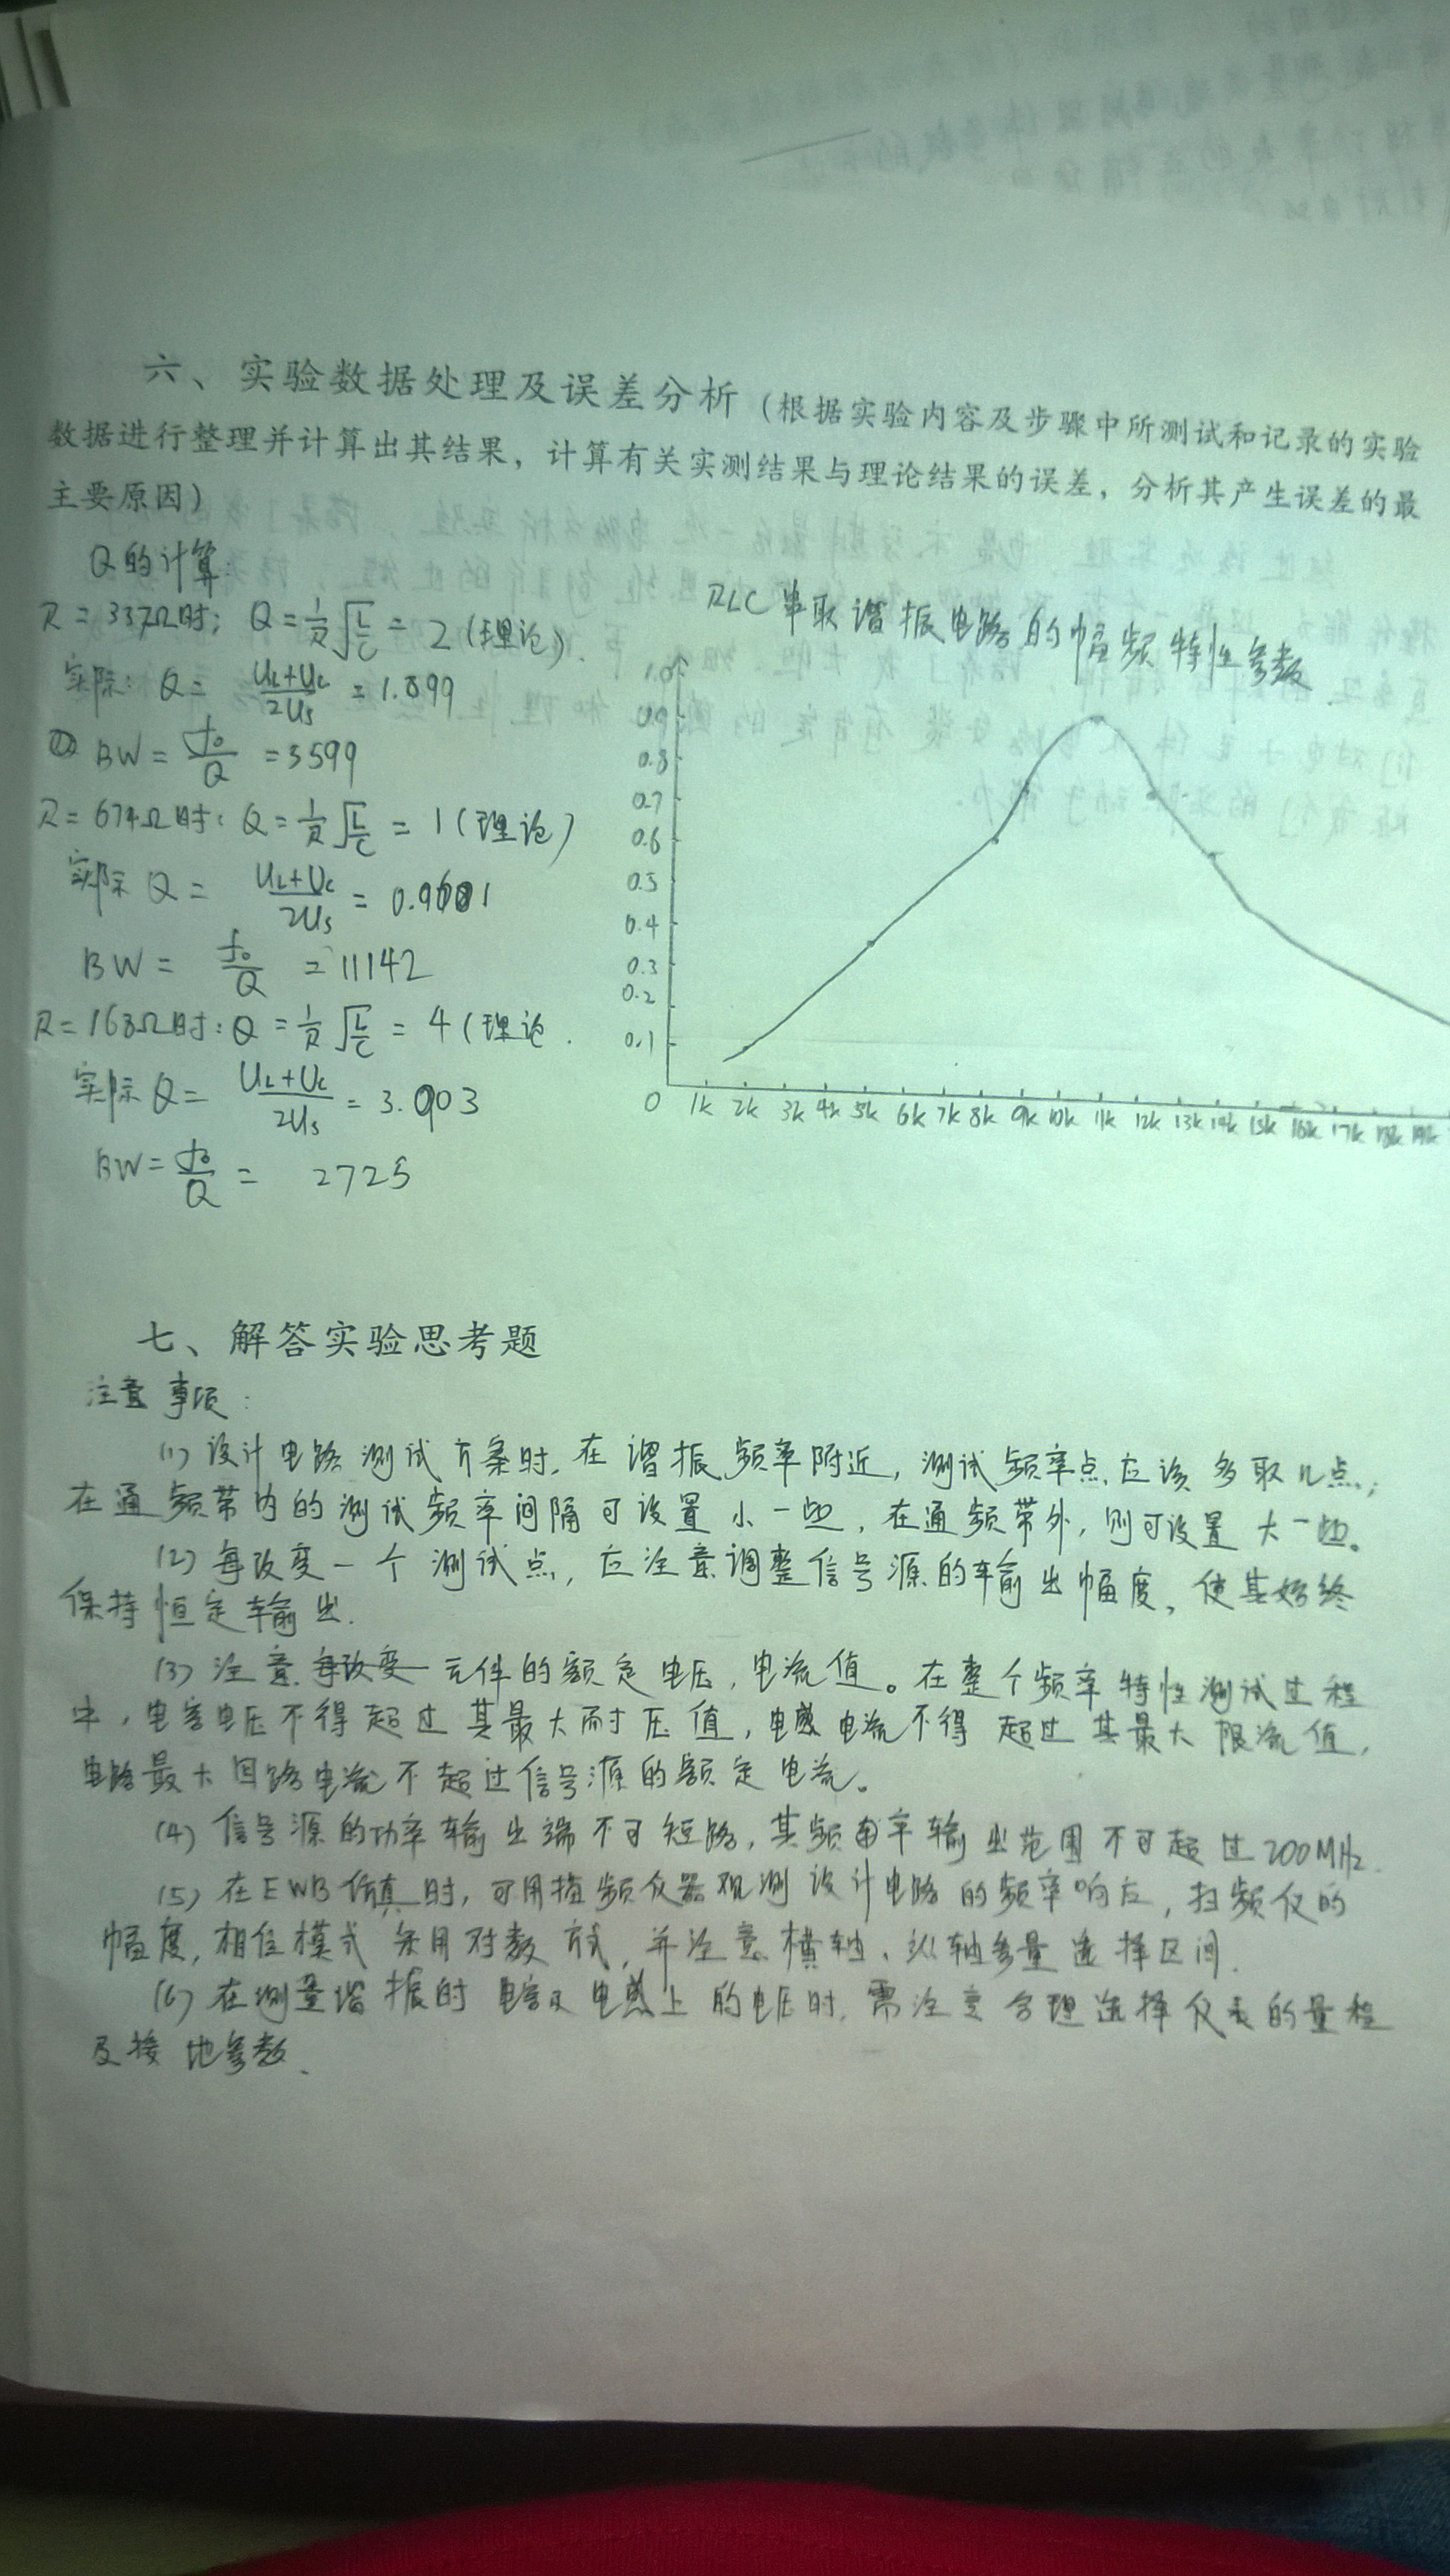 六、实验数据处理及误差分析（根据实验内容及步骤中所测试和记录的实验
数据进行整理并计算出其结果，计算有关实测结果与理论结果的误差，分析其产生误差的最
主要原因）
Q的计算:
R=337Ω时; Q=1/R√(L/C)=2(理论).
实际: Q=(UL+UC)/(2Us)=1.899
BW=f0/Q=3599
R=674Ω时: Q=1/R√(L/C)=1(理论)
实际Q=(UL+UC)/(2Us)=0.9601
BW=f0/Q=11142
R=168Ω时: Q=1/R√(L/C)=4(理论.
实际Q=(UL+UC)/(2Us)=3.903
BW=f0/Q=2725
RLC串联谐振电路的幅频特性参数
1.0
0.9
0.8
0.7
0.6
0.5
0.4
0.3
0.2
0.1
0 1k 2k 3k 4k 5k 6k 7k 8k 9k 10k 11k 12k 13k 14k 15k 16k 17k 18k 19k
七、解答实验思考题
注意事项:
(1)设计电路测试方案时,在谐振频率附近,测试频率点应该多取几点;
在通频带内的测试频率间隔可设置小一些,在通频带外,则可设置大一些。
(2)每改变一个测试点,应注意调整信号源的输出幅度,使其始终
保持恒定输出.
(3)注意元件的额定电压,电流值。在整个频率特性测试过程
中,电容电压不得超过其最大耐压值,电感电流不得超过其最大限流值,
电路最大回路电流不超过信号源的额定电流。
(4)信号源的功率输出端不可短路,其频率输出范围不可超过200MHz.
(5)在EWB仿真时,可用扫频仪器观测设计电路的频率响应,扫频仪的
幅度,相位模式采用对数方式,并注意横轴、纵轴参量选择区间.
(6)在测量谐振时电容及电感上的电压时,需注意合理选择仪表的量程
及接地参数.